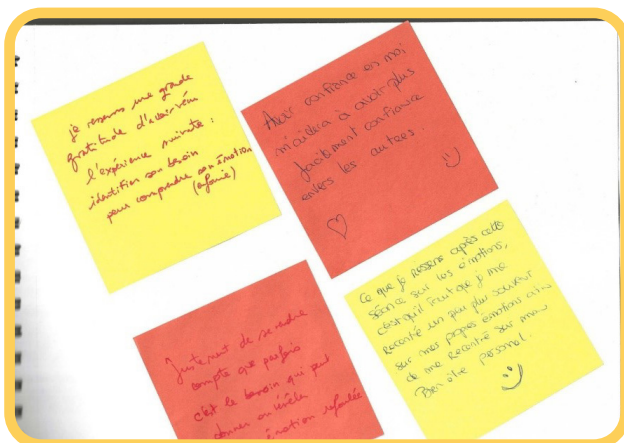 je ressens une grande
gratitude d'avoir vécu
l'expérience suivante :
identifier son besoin
pour comprendre son émotion
(enfouie)
Avoir confiance en moi
m'aidera à avoir plus
facilement confiance
envers les autres.
Justement de se rendre
compte que parfois
c'est le besoin qui peut
donner ou révèle
émotion refoulée
Ce que je ressens après cette
séance sur les émotions,
c'est qu'il faut que je me
recentre un peu plus souvent
sur mes propres émotions afin
de me recentré sur mon
Bien être personnel.